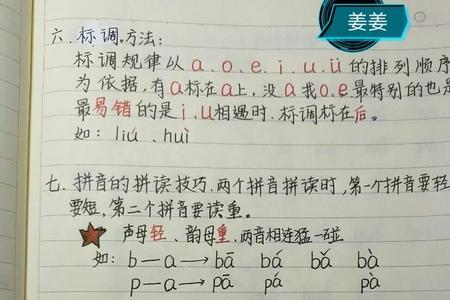 姜姜
六.标调方法:
标调规律以a.o.e.i.u.ü的排列顺序
为依据,有a标在a上,没a找o.e最特别的也是
最易错的是i.u相遇时.标调标在后。
如:liú、huì
七.拼音的拼读技巧.两个拼音拼读时,第一个拼音要轻
要短,第二个拼音要读重。
声母轻、韵母重,两音相连猛一碰
如: b—a→bā bá bǎ bà
p—a→pā pá pà